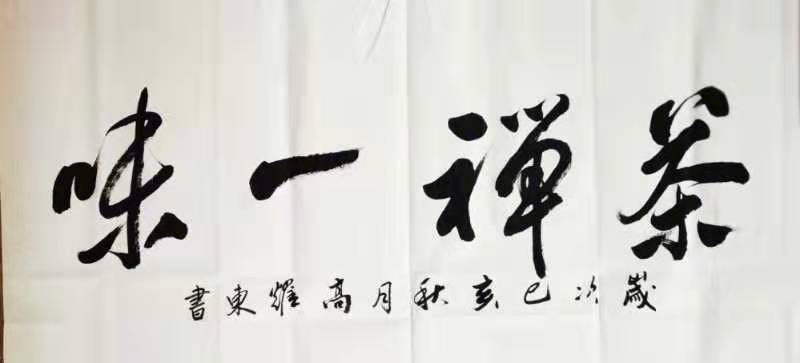 茶禅一味
歲次己亥秋月高耀東書